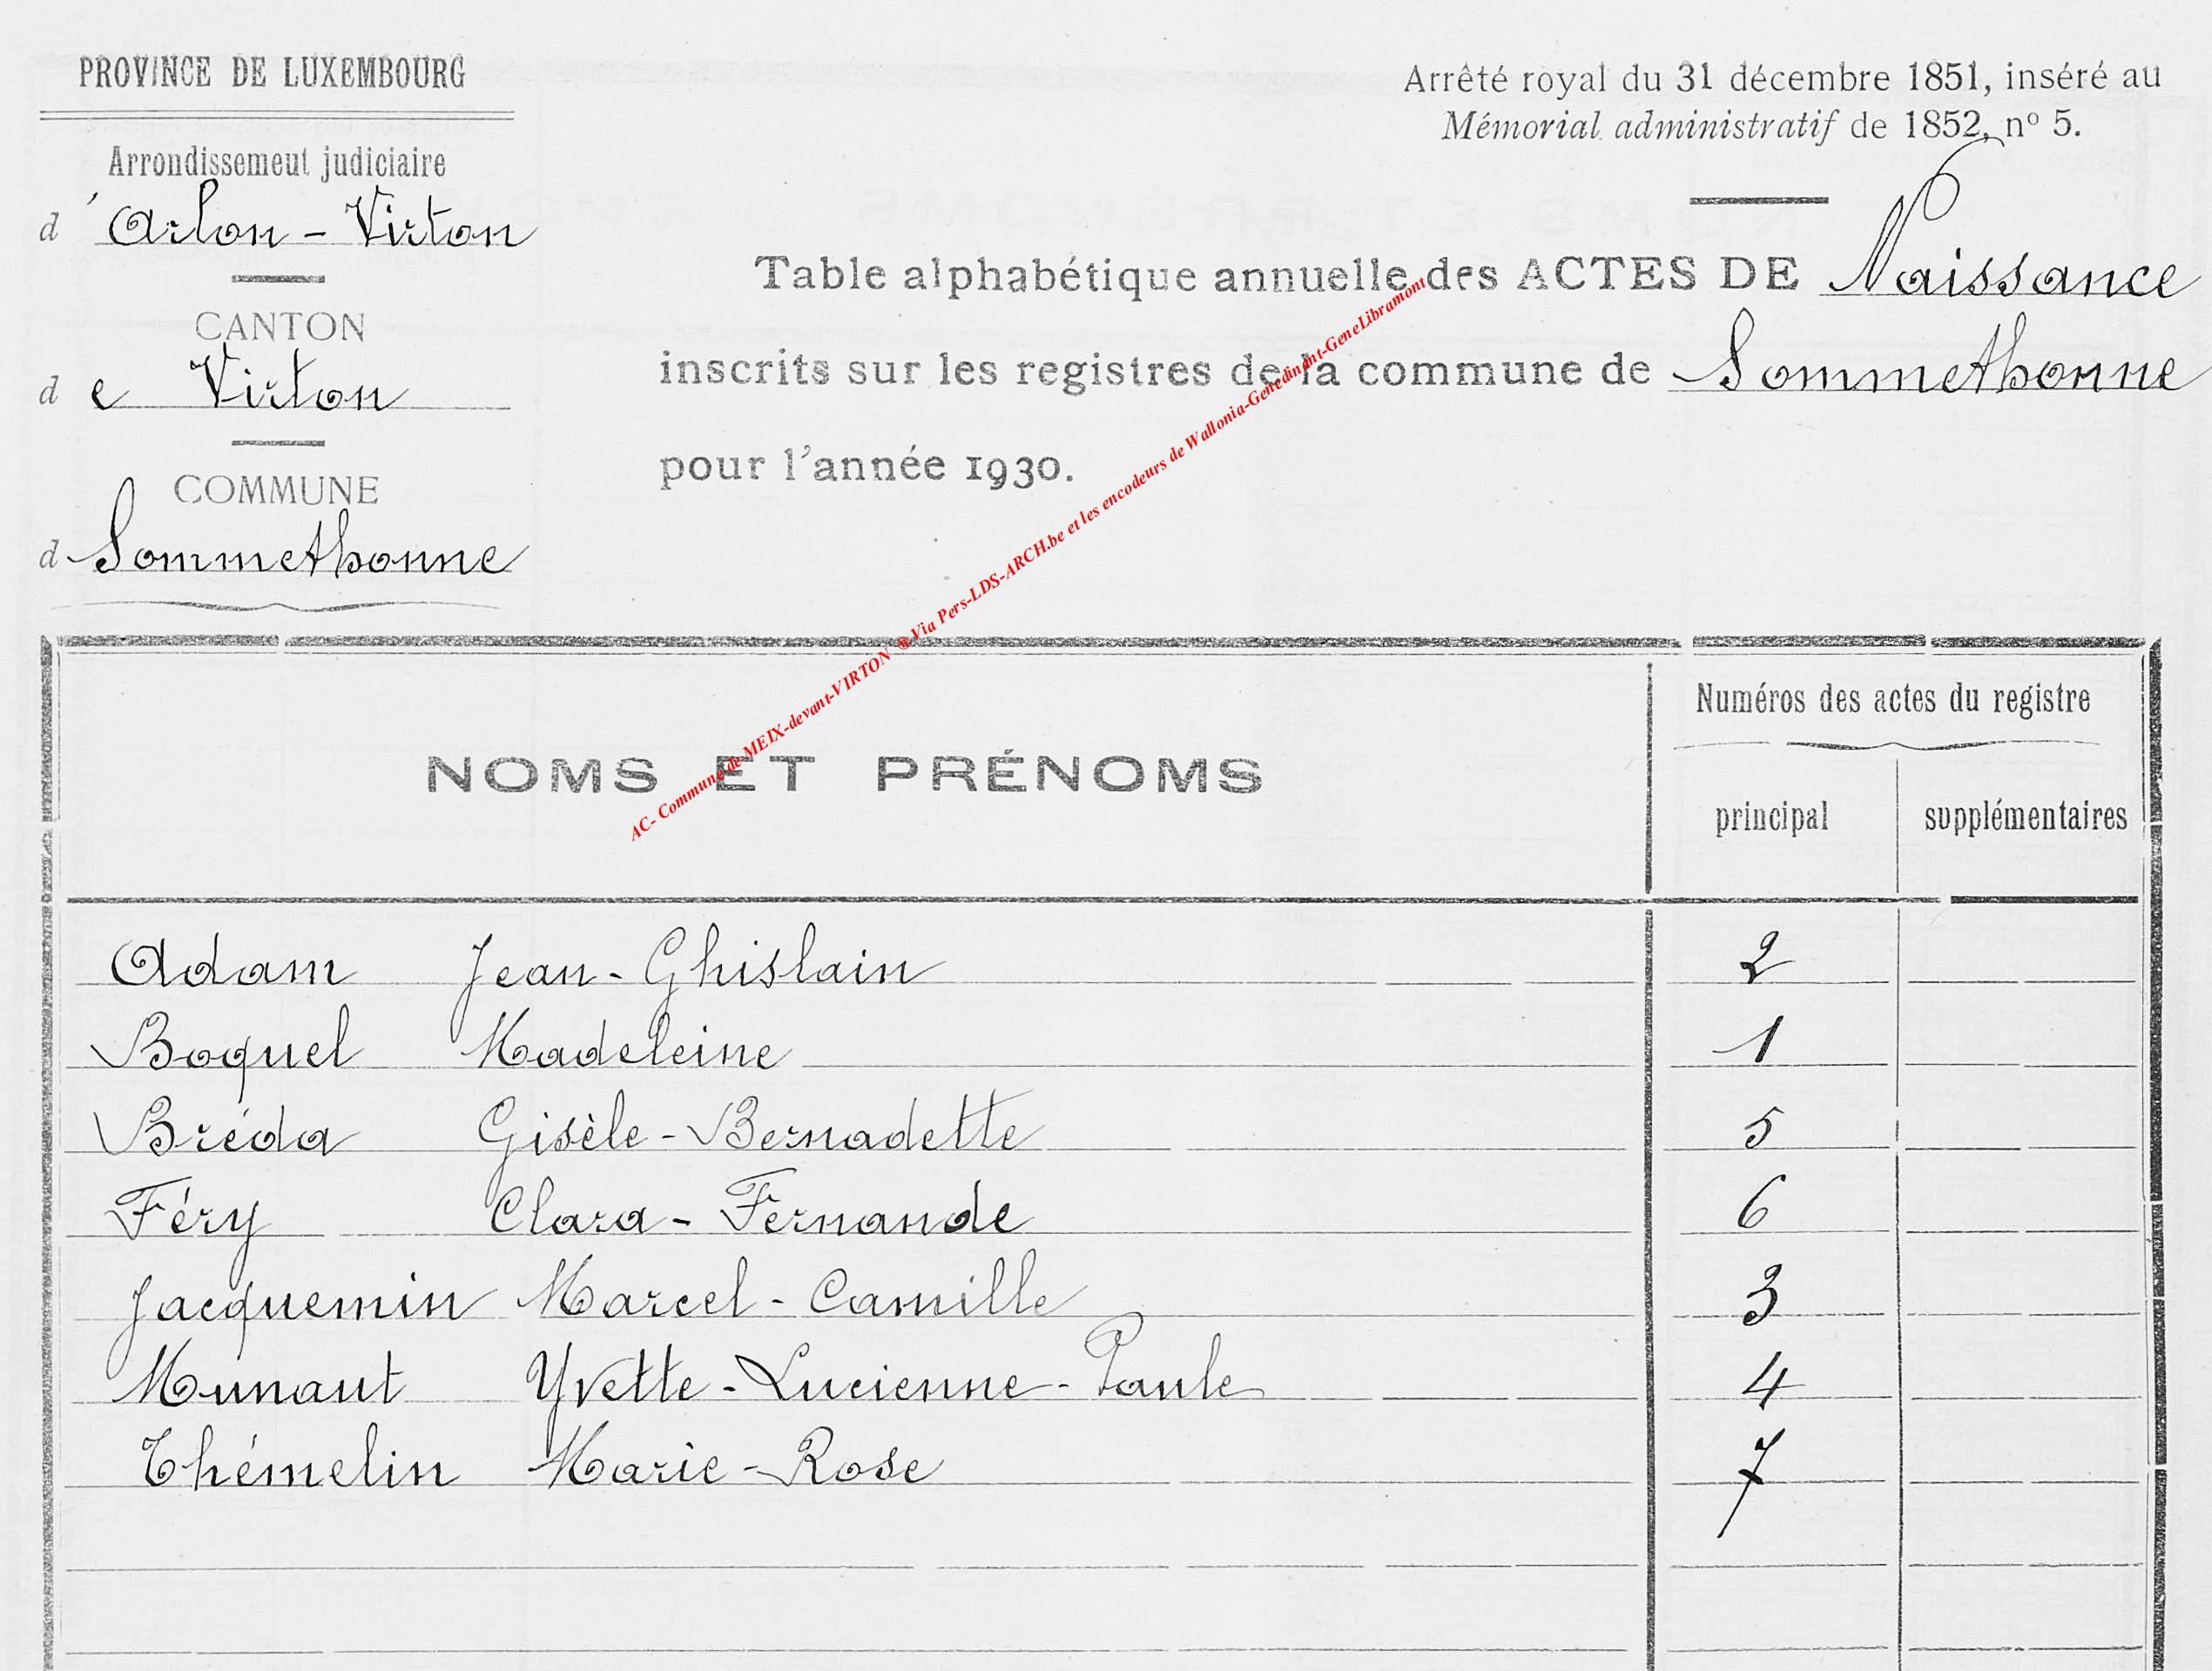 PROVINCE DE LUXEMBOURG
Arrondissement judiciaire
d'Arlon - Virton
CANTON
de Virton
COMMUNE
d Sommethonne
Arrêté royal du 31 décembre 1851, inséré au
Mémorial administratif de 1852, nº 5.
Table alphabétique annuelle des ACTES DE Naissance
inscrits sur les registres de la commune de Sommethonne
pour l'année 1930.
AC- Commune de MEIX-devant-VIRTON ® Via Pers-LDS-ARCH.be et les encodeurs de Wallonia-Genedinant-GeneLibramont
NOMS ET PRÉNOMS
Numéros des actes du registre
principal supplémentaires
Adam Jean-Ghislain 2
Boquel Madeleine 1
Bréda Gisèle-Bernadette 5
Féry Clara-Fernande 6
Jacquemin Marcel-Camille 3
Munaut Yvette-Lucienne-Paule 4
Thémelin Marie-Rose 7